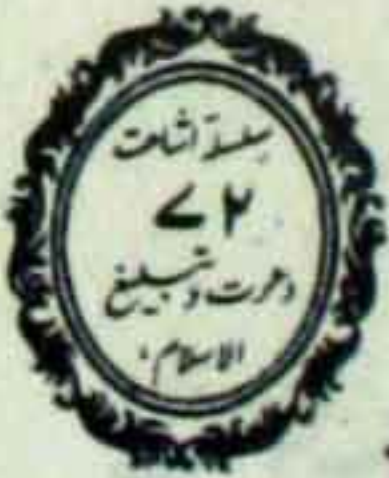 سلسلۂ اشاعت
۷۲
دعوت و تبلیغ
الاسلام،